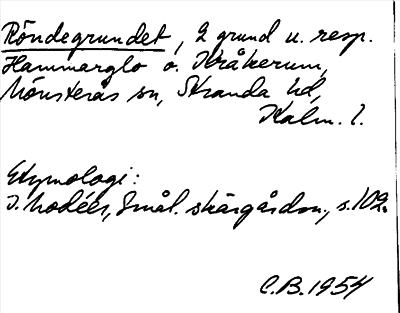 Röndegrundet, 2 grund u. resp.
Hammarglo o. Kråkerum,
Mönsterås sn, Stranda hd,
Kalm. l.
Etymologi:
I. Modéer, Smål. skärgårdsn., s. 102.
C.B. 1954